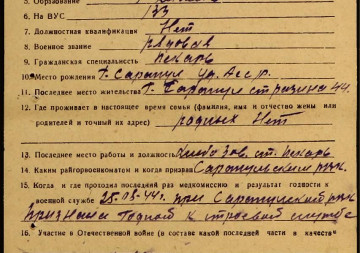 5. Образование
6. На ВУС 133
7. Должностная квалификация Нет
8. Военное звание рядовая
9. Гражданская специальность пекарь
10. Место рождения г. Сарапул Ур. Асср.
11. Последнее место жительства г. Сарапул 44.
12. Где проживает в настоящее время семья (фамилия, имя и отчество жены или
родителей и точный их адрес) родных Нет
13. Последнее место работы и должность Хлебозав. ст. пекарь
14. Каким райгорвоенкоматом и когда призван Сарапульским рвк.
15. Когда и где проходил последний раз медкомиссию и результат годности к
военной службе 25.IX-44г. при Сарапульский рвк
признана годной к строевой службе
16. Участие в Отечественной войне (в составе какой последней части и в качестве